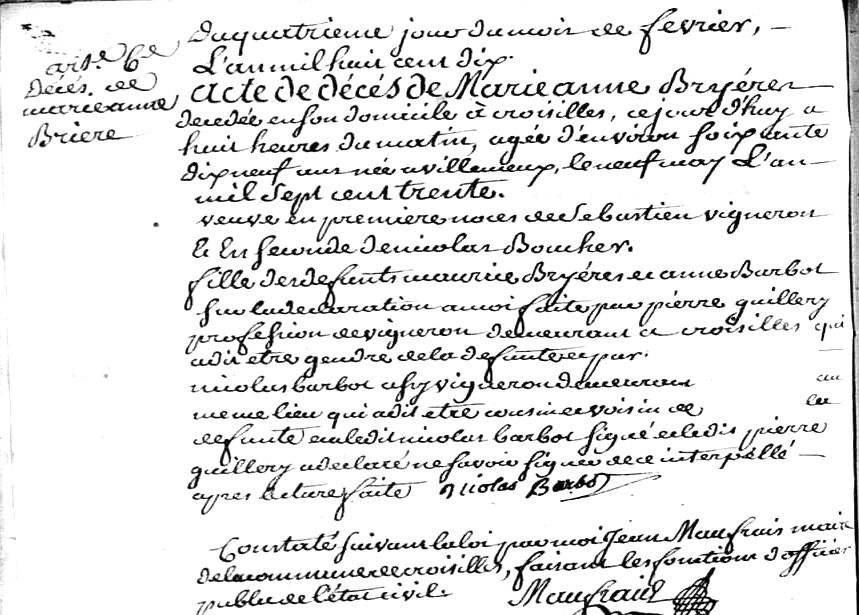 arte. 6e
décès. de
marieanne
Briere
Du quatrieme jour du mois de fevrier, —
L'an mil huit cent dix.
acte de décés de Marie anne Bryéres
decedée en son domicile à croisilles, ce jour d'huy a
huit heures du matin, agée d'environ soixante
dix neuf ans née a villemeux, le neuf may L'an —
mil sept cent trente.
veuve en premiere noces de Sebastien vigneron
Et En seconde de nicolas Boucher.
fille des defunts maurice Bryéres et anne Barbot
sur la declaration a moi faite par pierre guillery
profession de vigneron demeurant a croisilles qui
a dit etre gendre de la defunte et par.
nicolas barbot vigneron demeurant au
meme lieu qui a dit etre cousin et voisin de la
defunte et ledit nicolas barbot signé et ledit pierre
guillery a declaré ne savoir signer de ce interpellé —
apres lecture faite Nicolas Barbot
Constaté suivant la loi par moi Jean Maufrais maire
de la commune de croisilles, faisant les fonctions d'officier
public de l'état civil. Maufrais